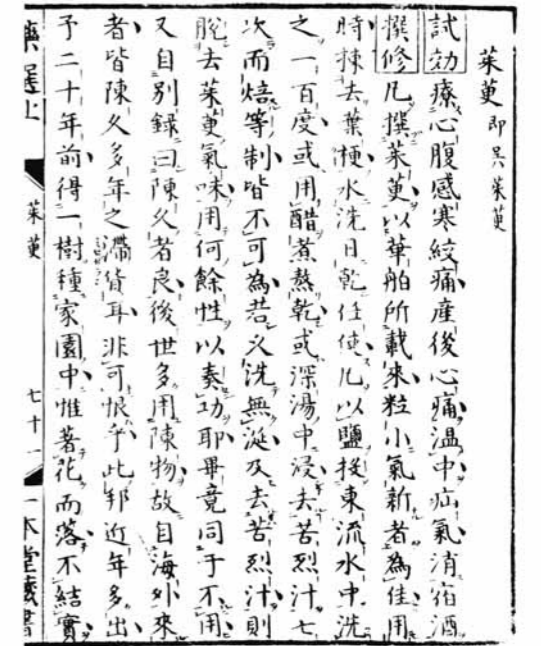 茱萸 即吳茱萸
試効 療心腹感寒絞痛産後心痛温中疝氣消宿酒
撰修 凡撰茱萸以華舶所載来粒小氣新者為佳用
時揀去葉梗水洗日乾任使凡以鹽投東流水中洗
之一百度或用醋煮熬乾或深湯中浸去苦烈汁七
次而焙等制皆不可為若久洗無涎及去苦烈汁則
脫去茱萸氣味用何餘性以奏功耶畢竟同于不用
又自別録曰陳久者良後世多用陳物故自海外来
者皆陳久多年之滯貨耳非可恨乎此邦近年多出
予二十年前得一樹種家園中惟著花而落不結實
藥選上
茱萸
七十一
一本堂藏書